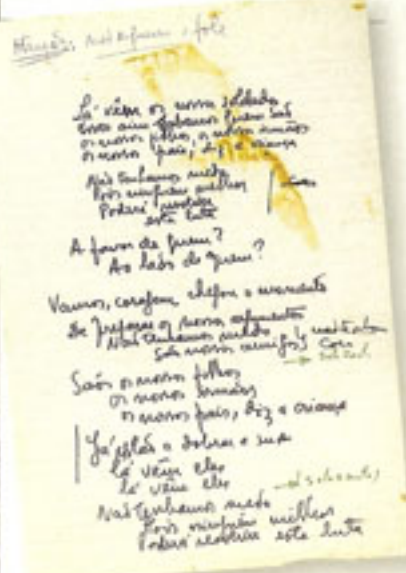 Atenção:
Lá vêm os nossos soldados
os nossos filhos, os nossos irmãos
os nossos pais, diz a criança
Não tenhamos medo
Pois ninguém melhor
Poderá
esta luta
A favor de quem?
Ao lado de quem?
Vamos, coragem, chegou o momento
De preparar os nossos argumentos
Não tenhamos medo
São nossos amigos
São os nossos filhos
os nossos irmãos
os nossos pais, diz a criança
Já estão a dobrar a rua
lá vêm eles
lá vêm eles
Não tenhamos medo
Pois ninguém melhor
Poderá esta luta